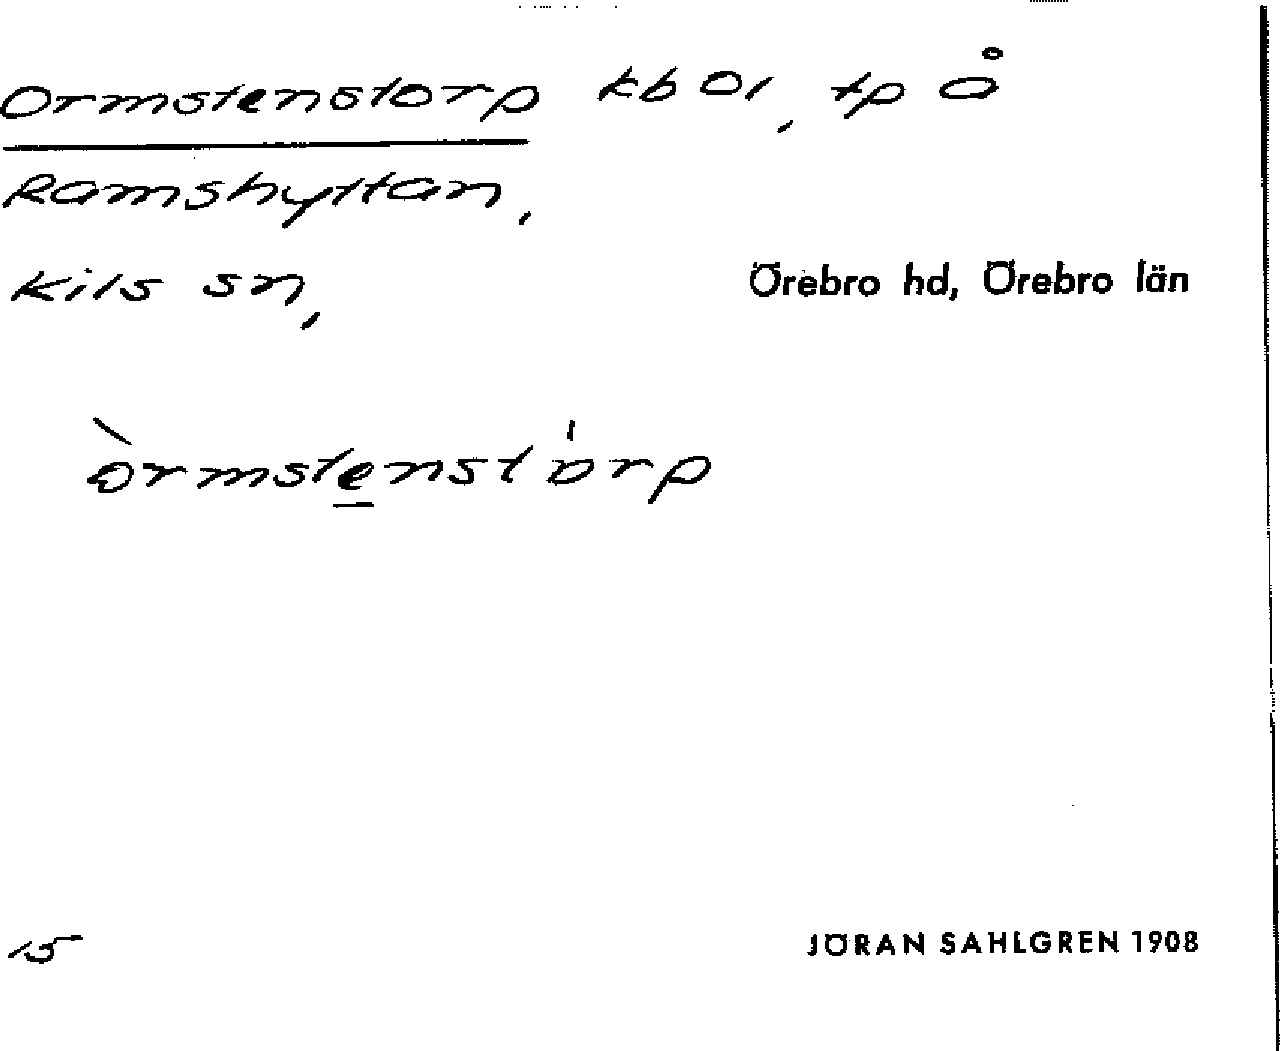 Ormstenstorp kb Ol, tp å
Ramshyttan,
Kils sn, Örebro hd, Örebro län
òrmstenstórp
15 JÖRAN SAHLGREN 1908